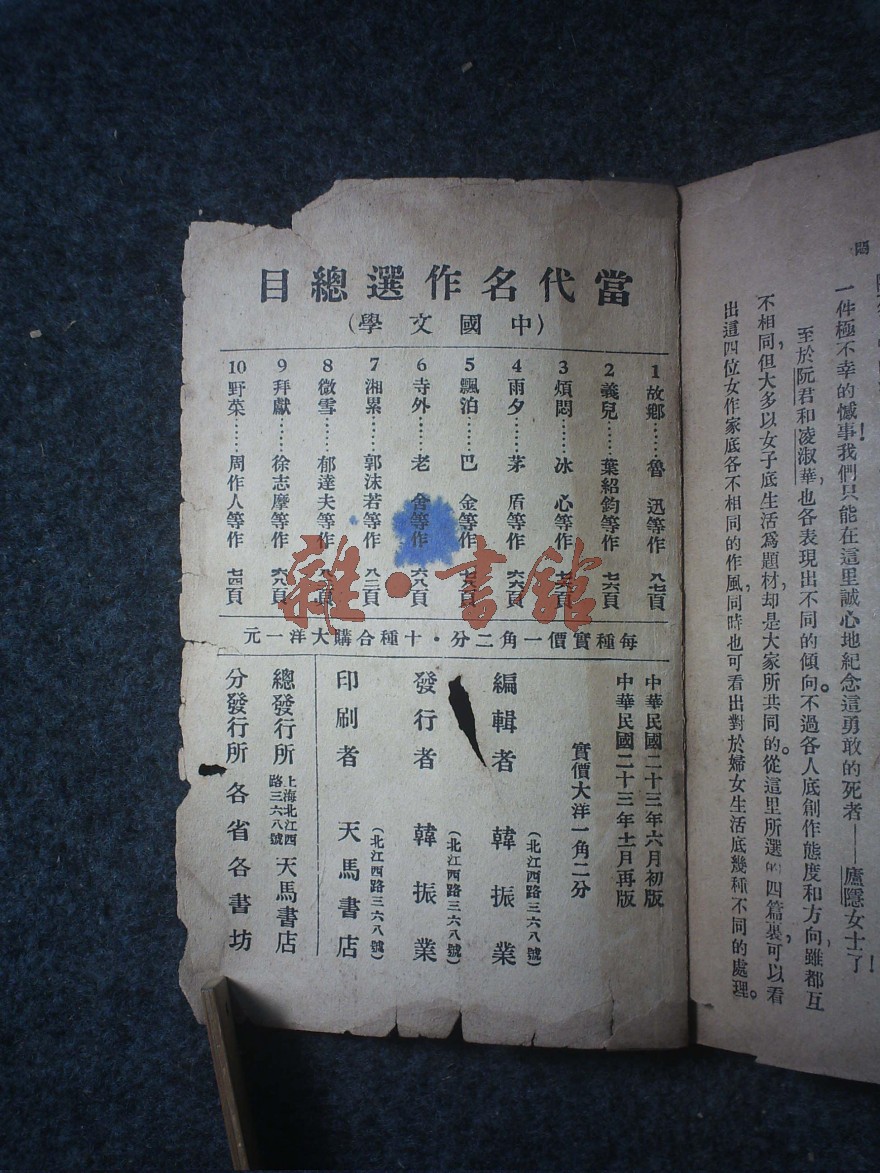 悶
一件極不幸的憾事!我們只能在這里誠心地紀念這勇敢的死者——廬隱女士了!
至於阮君和凌淑華,也各表現出不同的傾向。不過各人底創作態度和方向,雖都互
不相同,但大多以女子底生活爲題材,却是大家所共同的。從這里所選的四篇裏,可以看
出這四位女作家底各不相同的作風,同時也可看出對於婦女生活底幾種不同的處理。
當代名作選總目
(中國文學)
1 故鄉……魯 迅等作 八七頁
2 義兒……葉紹鈞等作 七六頁
3 煩悶……冰 心等作 七六頁
4 雨夕……茅 盾等作 六六頁
5 飄泊……巴 金等作 頁
6 寺外……老 舍等作 六八頁
7 湘累……郭沫若等作 八二頁
8 微雪……郁達夫等作 頁
9 拜獻……徐志摩等作 六八頁
10 野菜……周作人等作 七四頁
每種實價一角二分·十種合購大洋一元
中華民國二十三年六月初版
中華民國二十三年十一月再版
實價大洋一角二分
編輯者 韓振業
(北江西路三六八號)
發行者 韓振業
(北江西路三六八號)
印刷者 天馬書店
(北江西路三六八號)
總發行所 上海北江西路三六八號 天馬書店
分發行所 各省各書坊
雜·書館